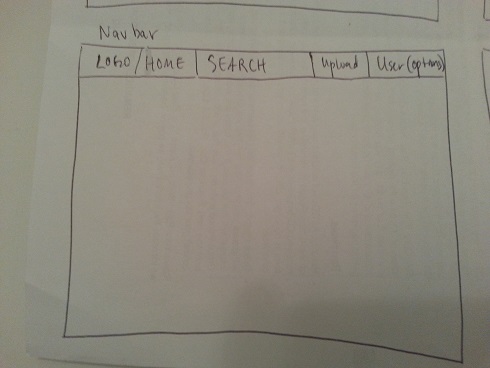 Navbar
LOGO/HOME SEARCH Upload User (options)